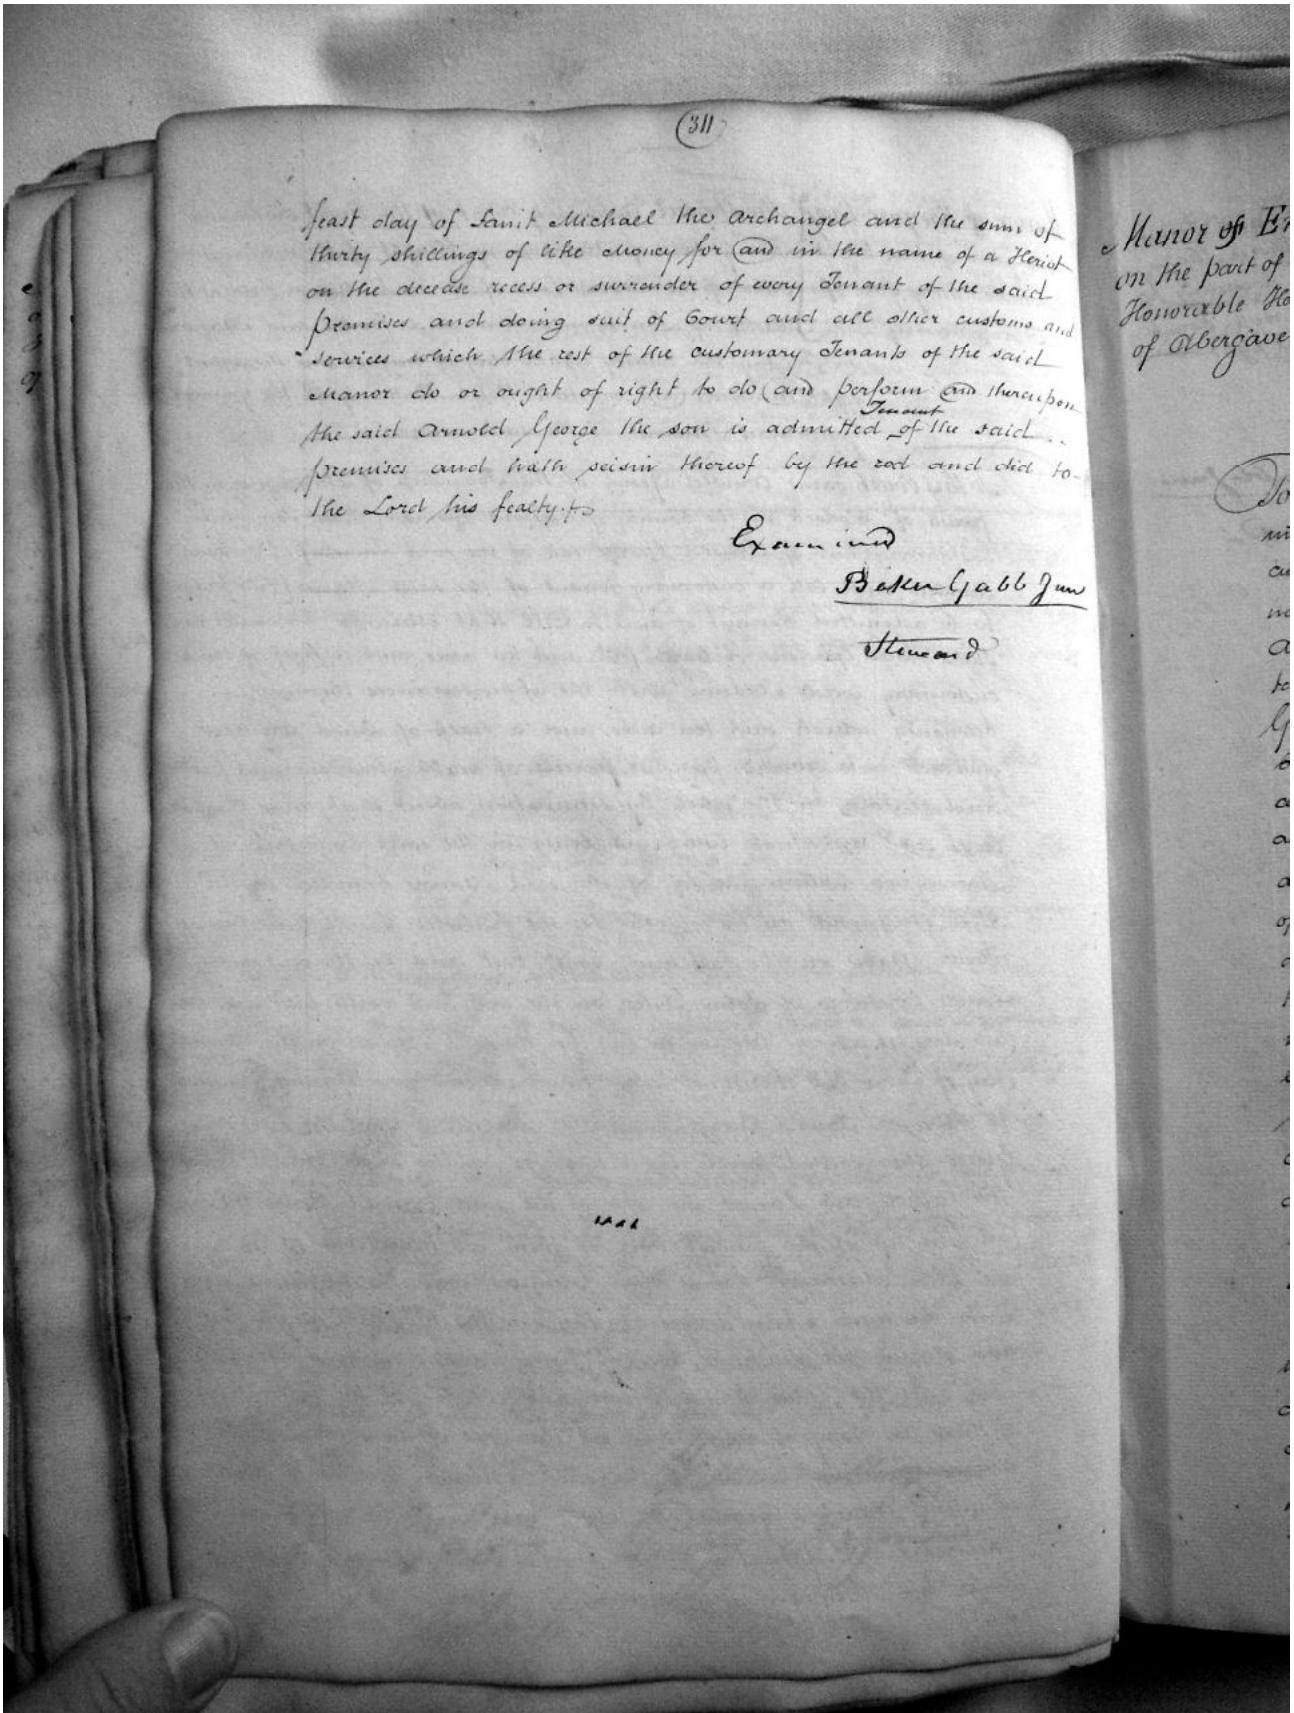 311
feast day of Saint Michael the Archangel and the sum of
thirty shillings of like Money for and in the name of a Heriot
on the decease recess or surrender of every Tenant of the said
premises and doing suit of Court and all other customs and
services which the rest of the customary Tenants of the said
Manor do or ought of right to do and perform and thereupon
the said Arnold George the son is admitted Tenant of the said
premises and hath seisin thereof by the rod and did to
the Lord his fealty.
Examined
Baker Gabb Jun
Steward
Manor of
on the part of
Honorable
of Abergave